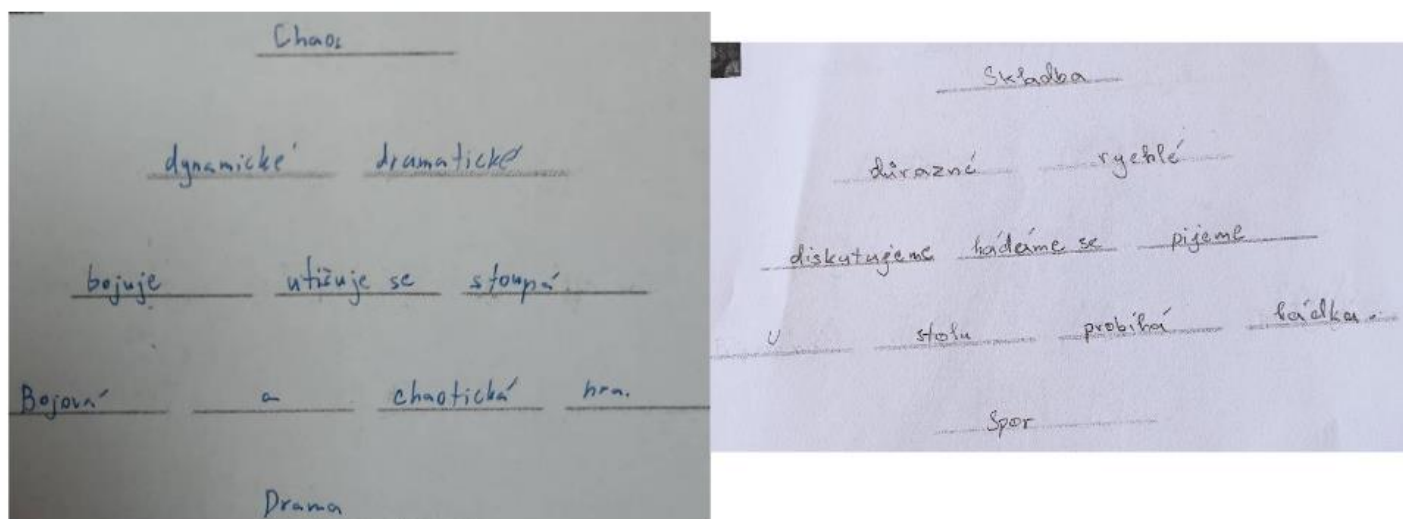 Chaos
dynamické dramatické
bojuje utišuje se stoupá
Bojová a chaotická hra.
Drama
Skladba
důrazné rychlé
diskutujeme hádáme se pijeme
U stolu probíhá hádka.
Spor